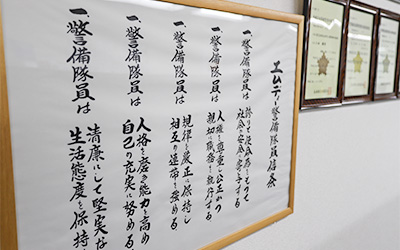 エムテー警備隊員信条
一、警備隊員は
誇りと使命感をもって
社会の安全に寄与する
一、警備隊員は
人権を尊重し公正かつ
親切に職務を執行する
一、警備隊員は
規律を厳正に保持し
相互の連帯を強める
一、警備隊員は
人格を磨き能力を高め
自己の充実に努める
一、警備隊員は
清廉にして堅実な
生活態度を保持